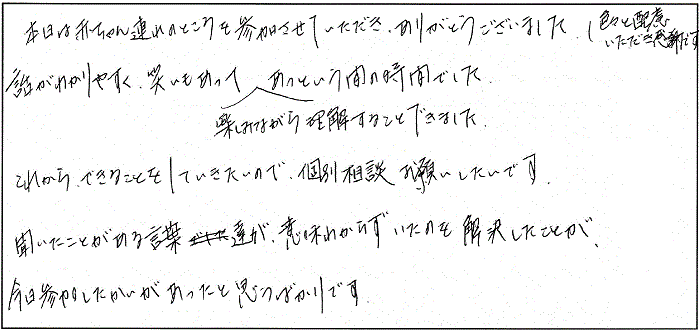 本日は赤ちゃん連れのところを参加させていただき、ありがとうございました。(色々と配慮いただき感謝です
話がわかりやすく、笑いもあって あっという間の時間でした。
楽しみながら理解することできました。
これから、できることをしていきたいので、個別相談お願いしたいです。
聞いたことがある言葉達が、意味わからずいたのを解決したことが、
今日参加したかいがあったと思うばかりです。